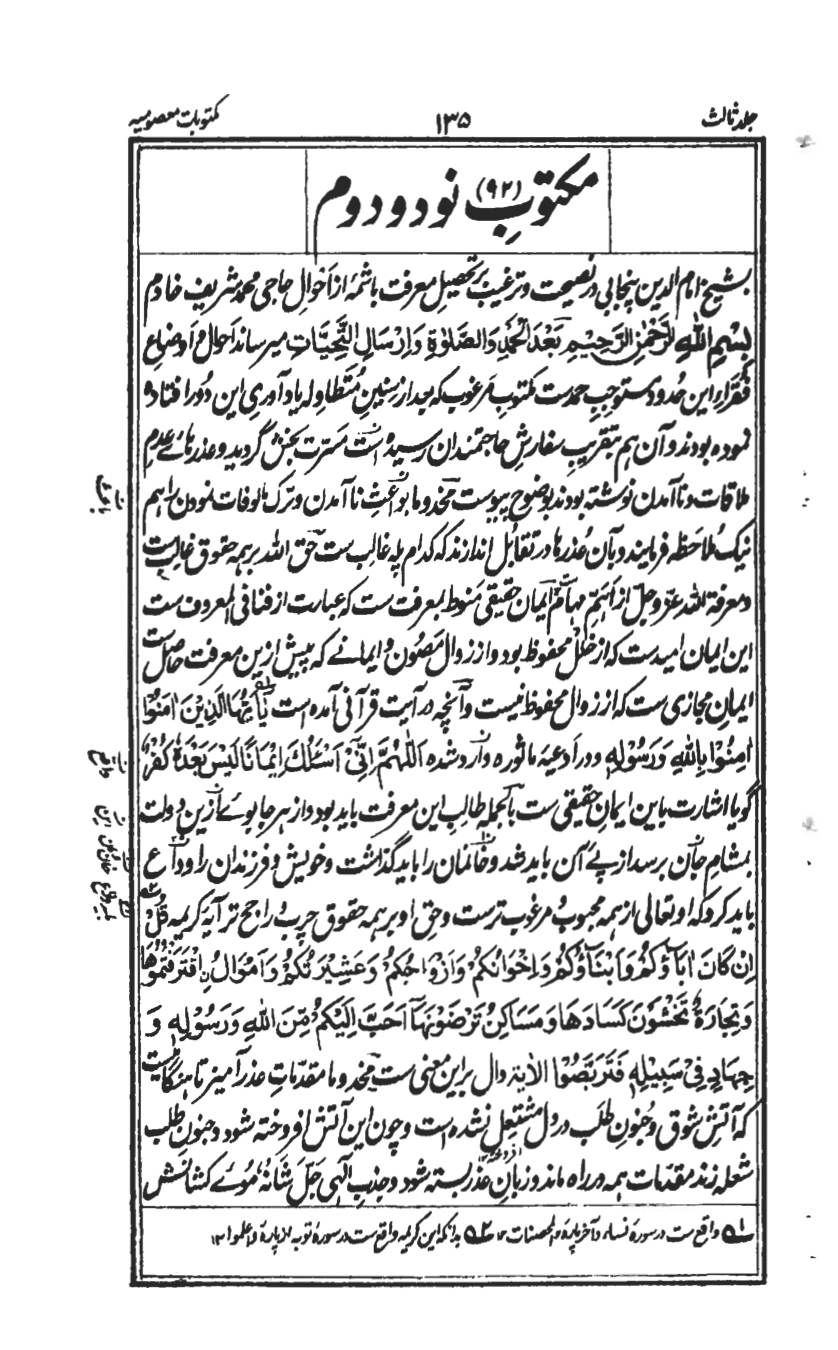 جلد ثالث
۱۳۵
مکتوبات معصومیه
مکتوبِ (۹۲) نود و دوم
بشیخ امام الدین پنجابی در نصیحت و ترغیب بر تحصیلِ معرفت باشمۀ از اَحوالِ حاجی محمد شریف خادم
بِسْمِ اللهِ الرَّحْمٰنِ الرَّحِیْمِ بَعْدَ الْحَمْدِ وَالصَّلٰوةِ وَاِرْسَالِ التَّحِیَّاتِ میرساند احوال و اوضاعِ
فُقَراءِ این حُدود مستوجبِ حمدست مکتوبِ مرغوب که بعد از سِنینِ مُتَطاوِله یادآوریِ این دُور افتاده
نموده بودند و آن هم بتقریبِ سفارشِ حاجتمندان رسیده است مَسَرّت بخش گردید و عذرهائے عدمِ
ملاقات و ناآمدن نوشته بودند بوضوح پیوست مخدوما بواعثِ ناآمدن و ترکِ مالوفات نمودن را هم
نیک مُلاحَظه فرمایند و بآن عُذرها در تقابُل اندازند که کدام پله غالب ست حق الله بر همه حقوق غالب ست
و معرفة الله عزّ وجلّ از اَهَمِّ مهامّ ایمان حقیقی مَنوط بمعرفت ست که عبارت از فنا فی المعروف ست
این ایمان امیدست که از خلل محفوظ بود و از زوال مَصئون و ایمانے که پیش ازین معرفت حاصل ست
ایمانِ مجازی ست که از زوال محفوظ نیست و آنچه در آیت قرآنی آمده است یٰاَیُّهَا الَّذِیْنَ اٰمَنُوْا
اٰمِنُوْا بِاللهِ وَرَسُوْلِهٖ و در اَدعیۀ ماثوره وارد شده اَللّٰهُمَّ اِنِّیْ اَسْئَلُكَ اِیْمَانًا لَیْسَ بَعْدَهٗ كُفْرٌ
گویا اشارت باین ایمانِ حقیقی ست بالجمله طالبِ این معرفت باید بود و از هر جا بوئے ازین دولت
بمشامِ جان برسد از پئے آن باید شد و خانمان را باید گذاشت و خویش و فرزندان را وداع
باید کرد که او تعالی از همه محبوب و مرغوب ترست و حق او بر همه حقوق چرب و راجح تر آیۀ کریمه قُلْ
اِنْ كَانَ اٰبَآؤُكُمْ وَاَبْنَآؤُكُمْ وَاِخْوَانُكُمْ وَاَزْوَاجُكُمْ وَعَشِیْرَتُكُمْ وَاَمْوَالُ ۨاقْتَرَفْتُمُوْهَا
وَتِجَارَةٌ تَخْشَوْنَ كَسَادَهَا وَمَسَاكِنُ تَرْضَوْنَهَآ اَحَبَّ اِلَیْكُمْ مِّنَ اللهِ وَرَسُوْلِهٖ وَ
جِهَادٍ فِیْ سَبِیْلِهٖ فَتَرَبَّصُوْا الاٰیة دال بر این معنی ست مخدوما مقدّماتِ عذر آمیز تا هنگامیست
که آتشِ شوق و جُنونِ طلب در دل مشتعل نشده است و چون این آتش افروخته شود و جنونِ طلب
شعله زند مقدّمات همه در راه ماند و زبانِ عذر بسته شود و جذبِ الٰهی جَلَّ شَانُهٗ مُوئے کشانش
۱ واقع ست در سورۀ نساء و آخر پارۀ والمحصنات ۱۲ ۲ بدانکه این کریمه واقع ست در سورۀ توبه از پارۀ واعلموا ۱۲